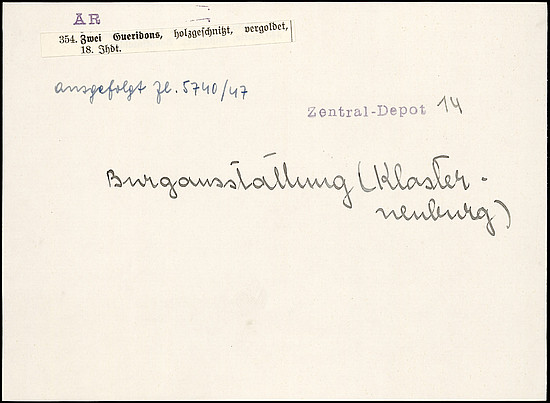 AR
354. Zwei Gueridons, holzgeschnitzt, vergoldet,
18. Jhdt.
ausgefolgt Zl. 5740/47
Zentral-Depot 14
Burgausstallung (Kloster-
neuburg)